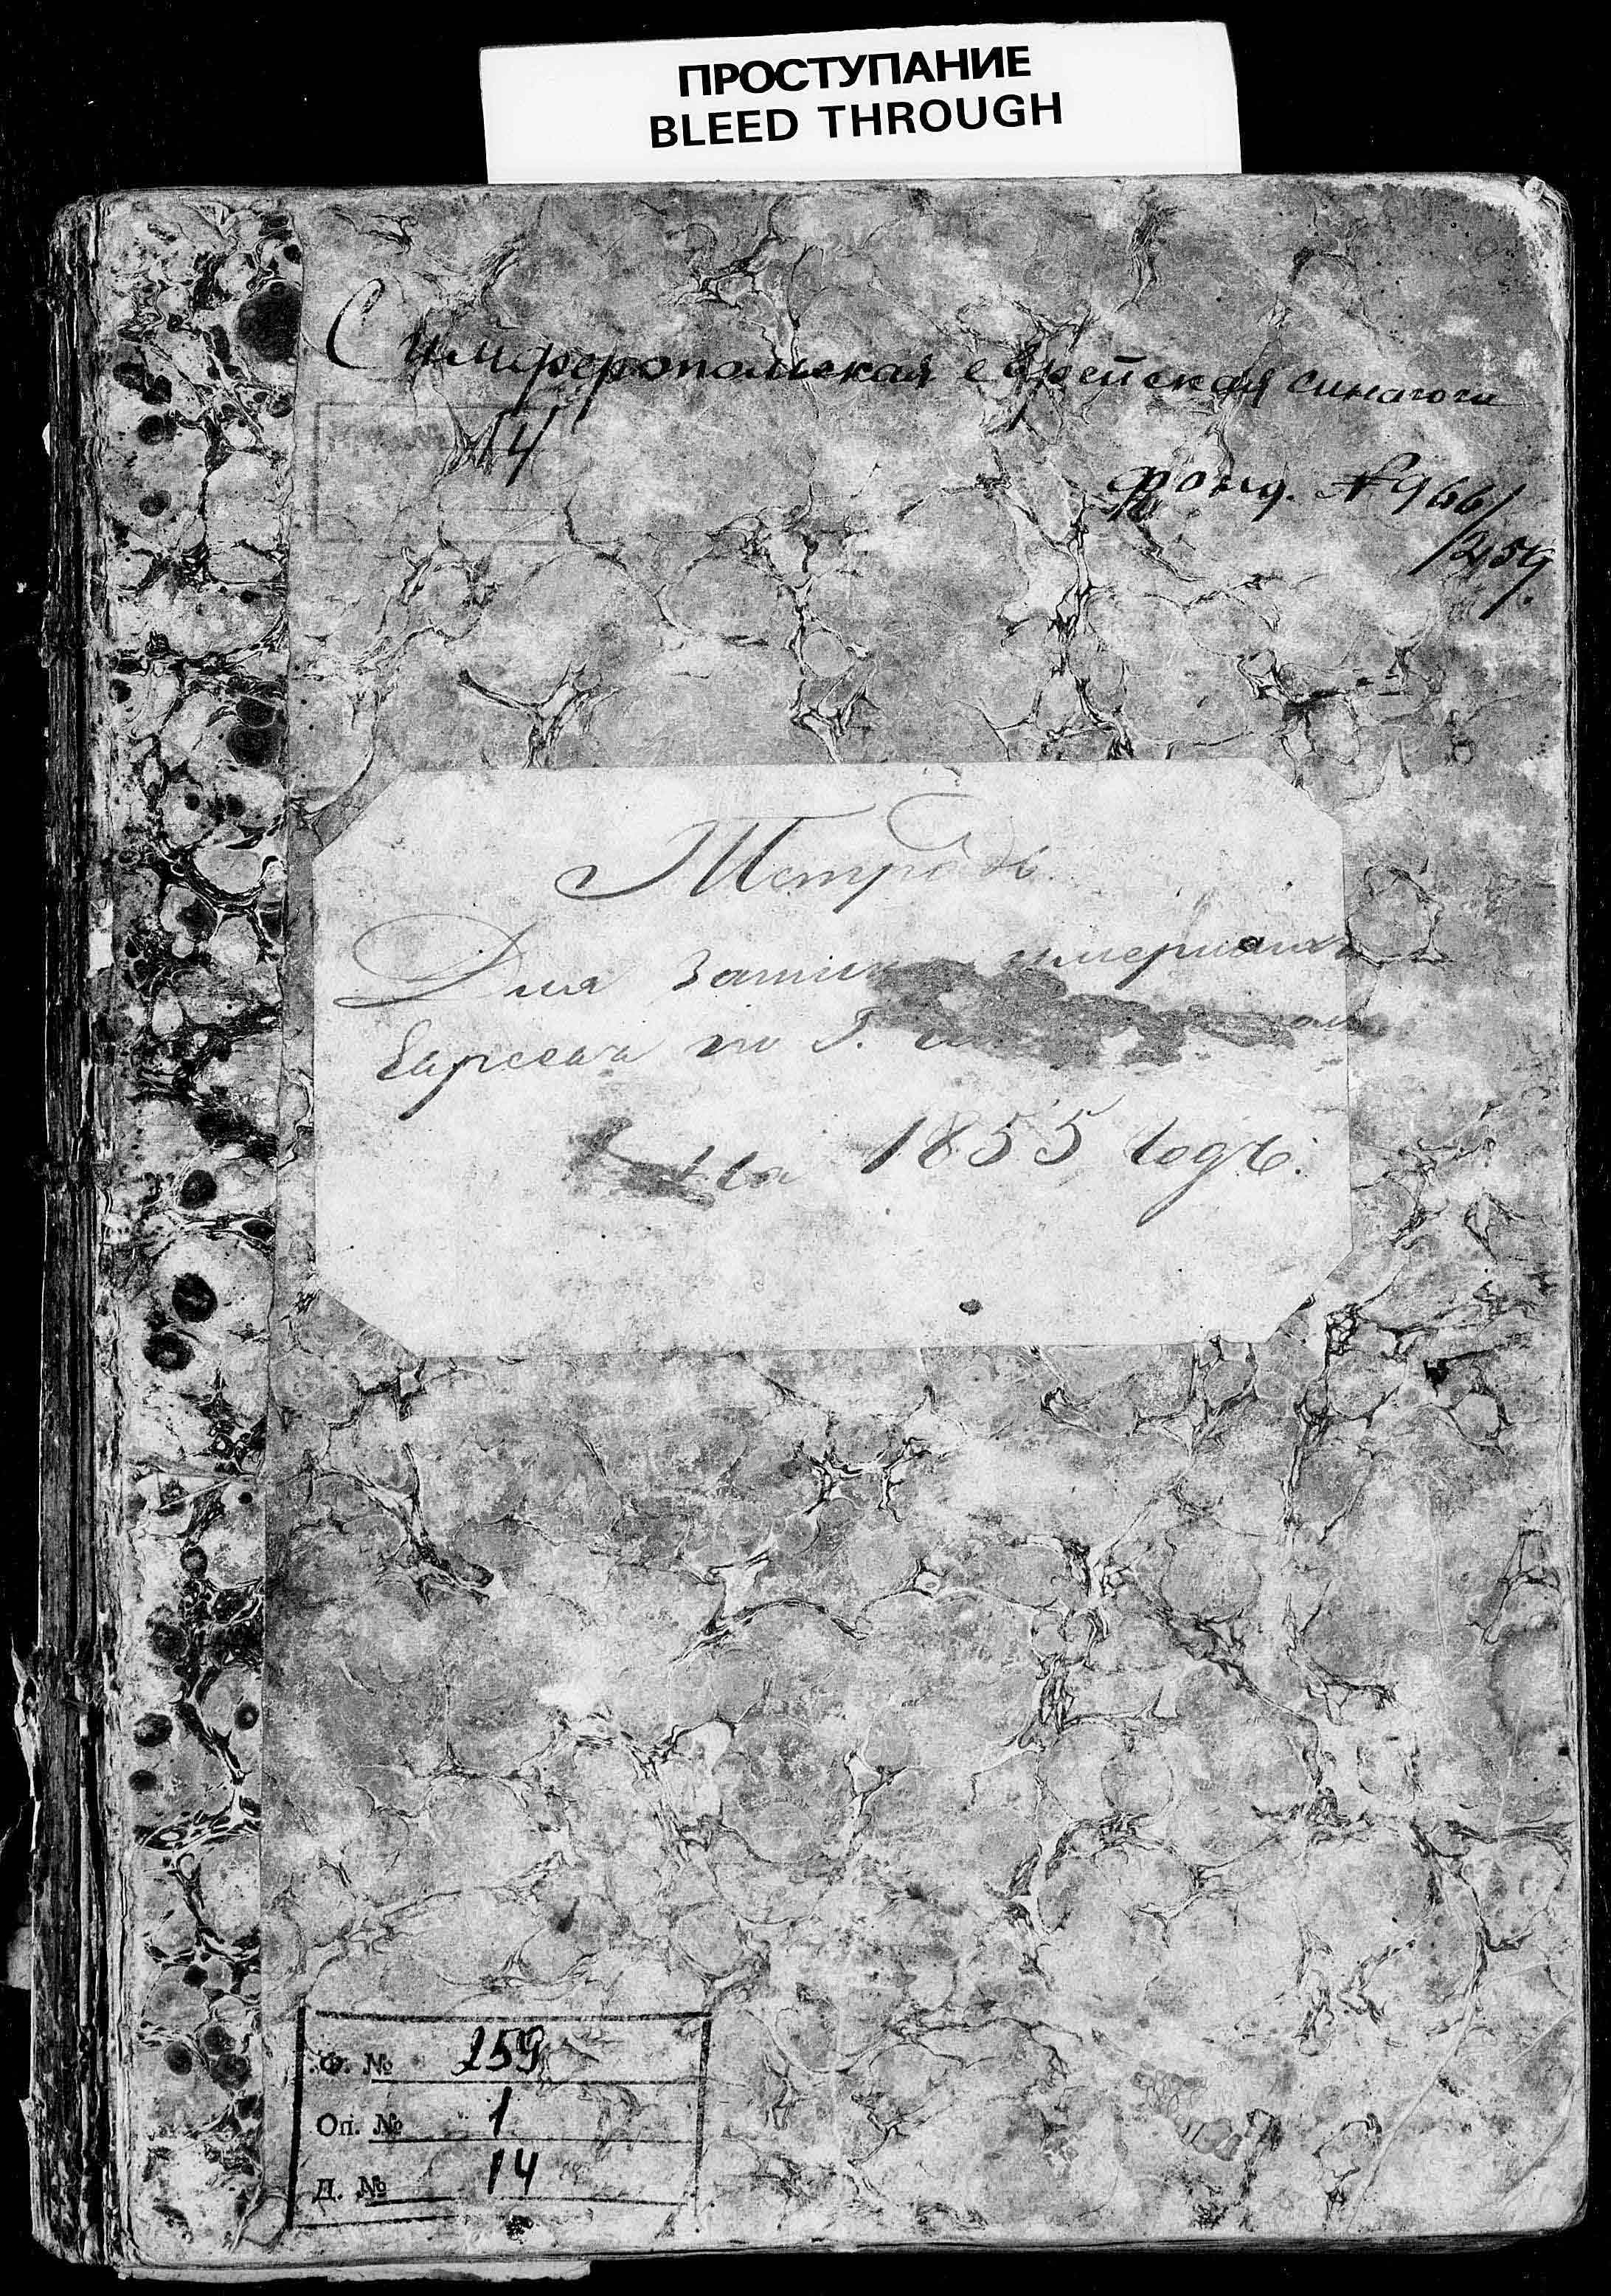 ПРОСТУПАНИЕ
BLEED THROUGH
Симферопольская еврейская синагога
14
Фонд. № 966/
/259.
Тетрадь
Для записи умершихъ
Евреевъ по Г.
На 1855 годъ.
Ф. № 259
Оп. № 1
Д. № 14